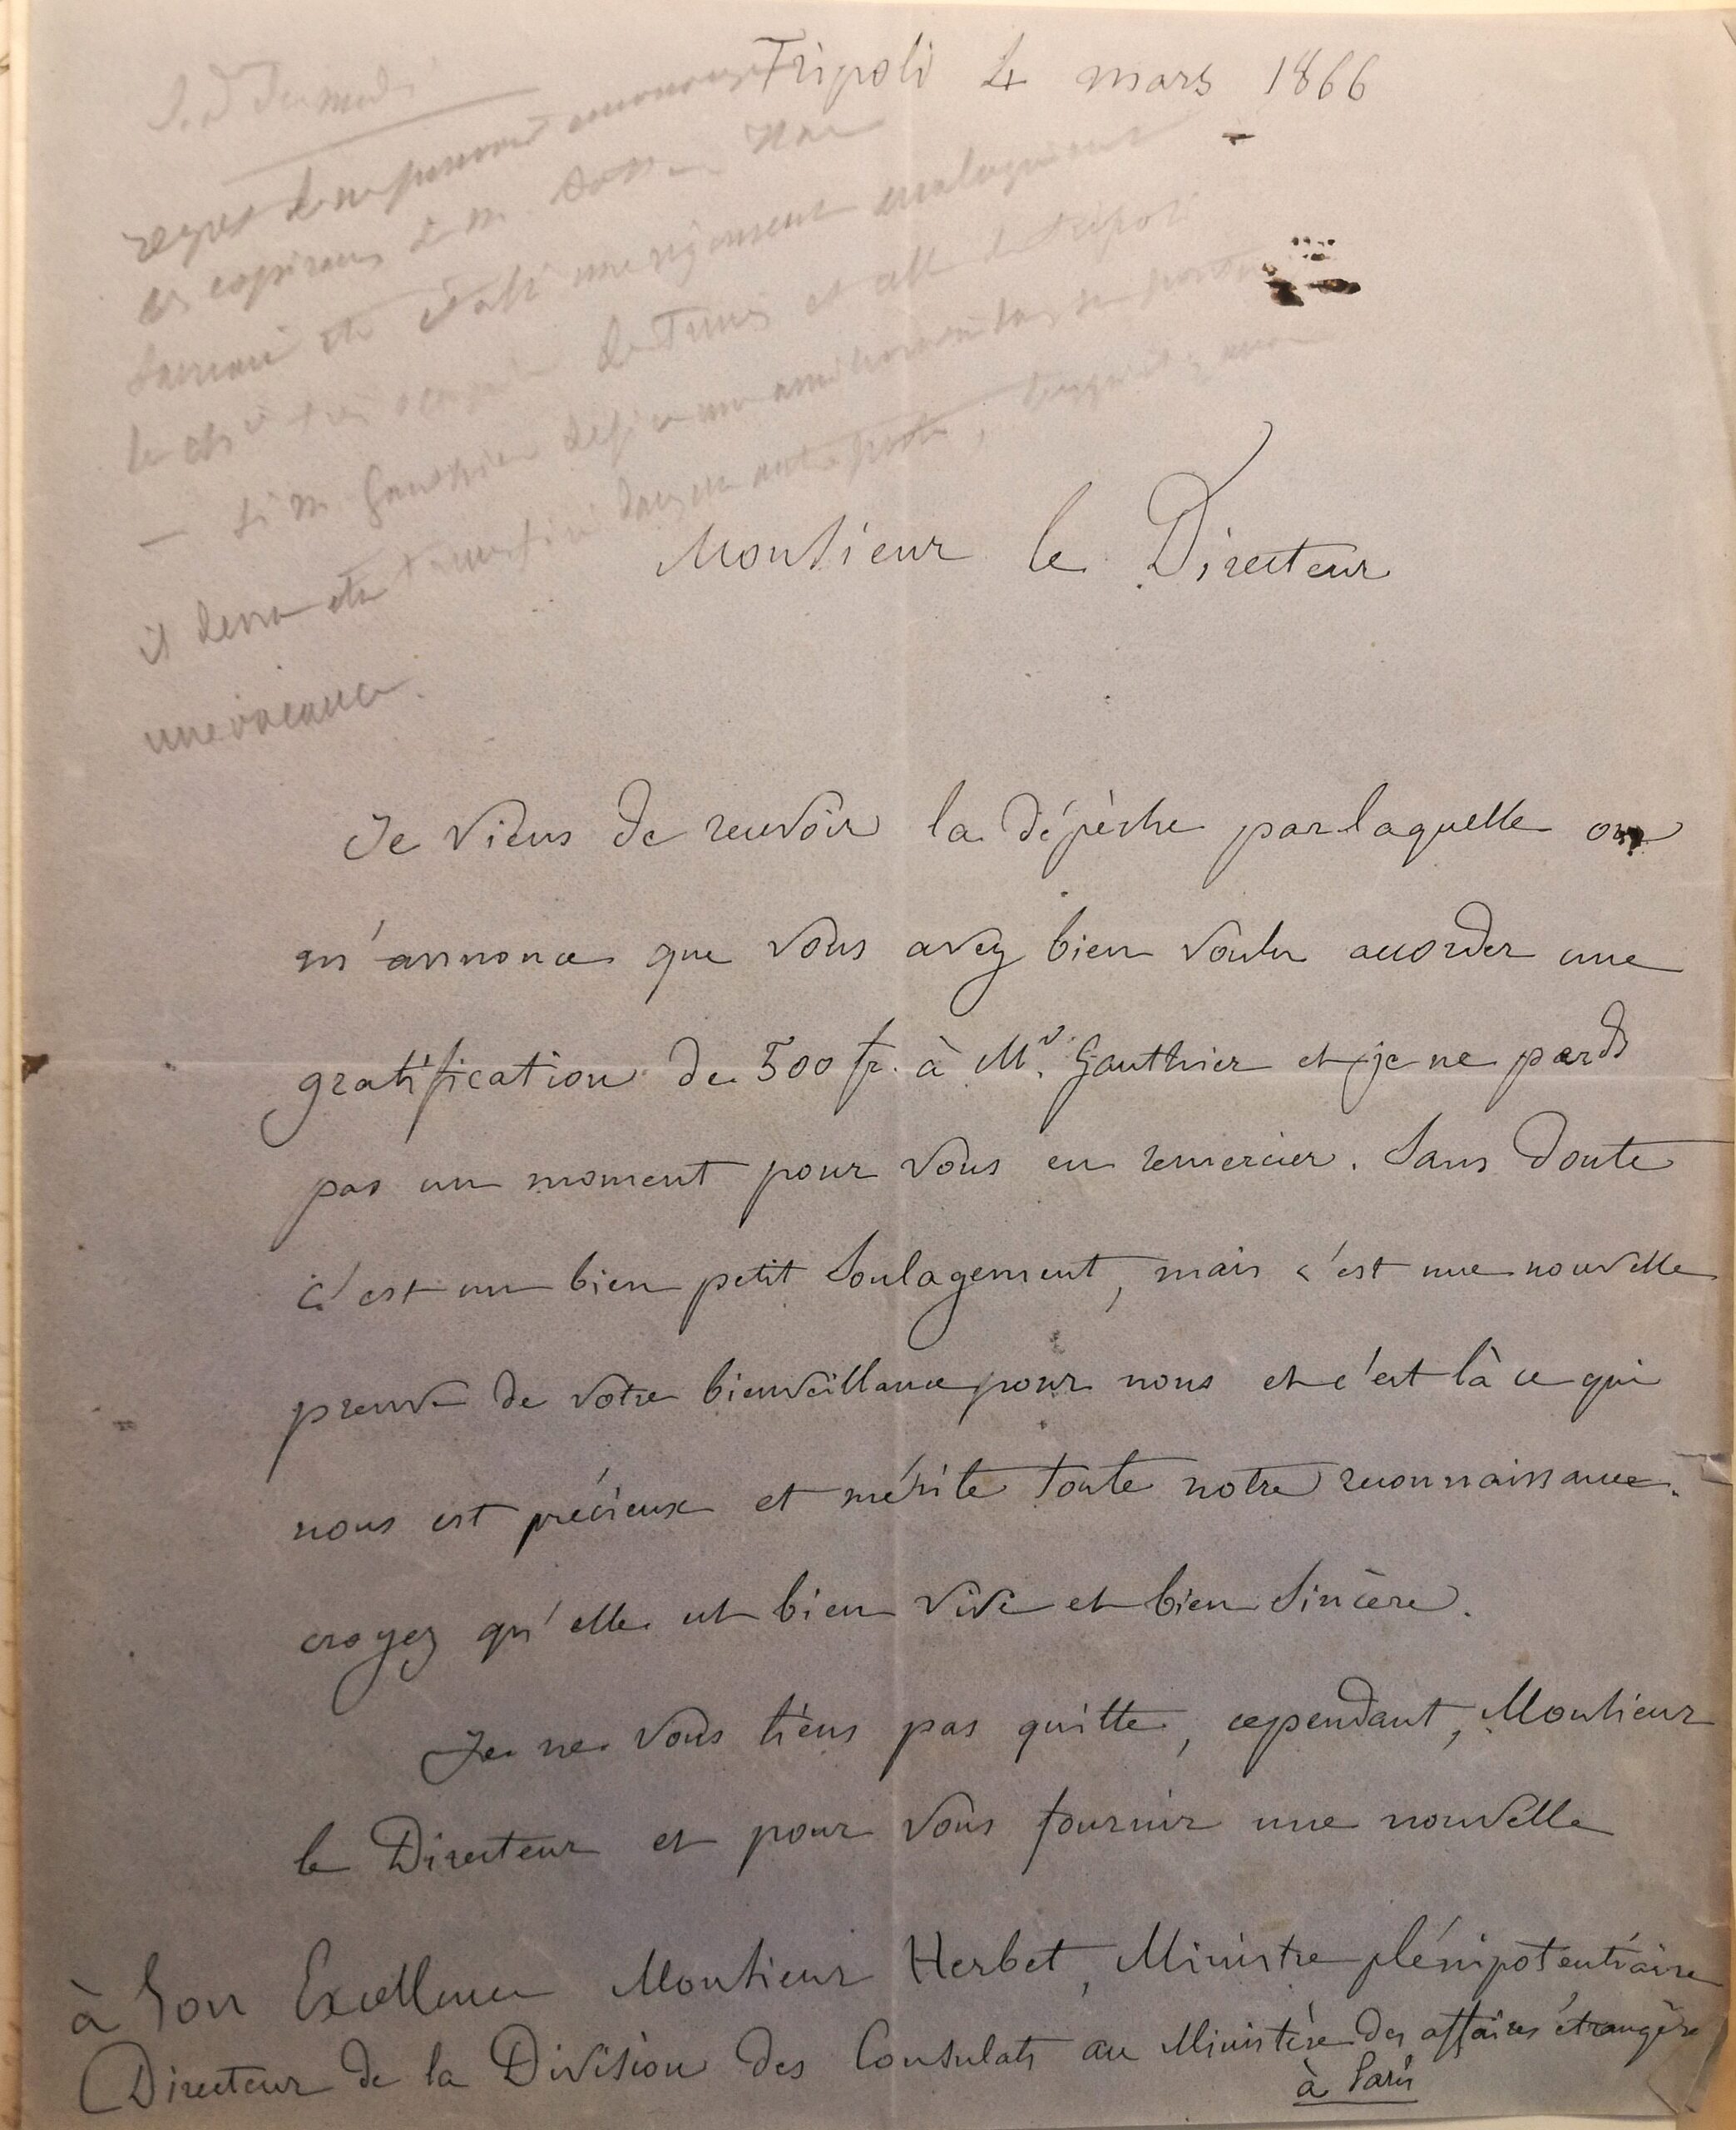 Tripoli 4 mars 1866
regret de ne pouvoir
les
de Tunis et celle de Tripoli
si M. Gauthier
il devra être dans un autre poste,
une vacance.
Monsieur le Directeur
Je viens de recevoir la dépèche par laquelle on
m'annonce que vous avez bien voulu accorder une
gratification de 500 fr. à Mr. Gauthier et je ne perds
pas un moment pour vous en remercier. Sans doute
c'est un bien petit soulagement, mais c'est une nouvelle
preuve de votre bienveillance pour nous et c'est là ce qui
nous est précieux et mérite toute notre reconnaissance.
croyez qu'elle est bien vive et bien sincère.
Je ne vous tiens pas quitte, cependant, Monsieur
le Directeur et pour vous fournir une nouvelle
à Son Excellence Monsieur Herbet, Ministre plénipotentiaire
Directeur de la Division des Consulats au Ministère des affaires étrangères
à Paris